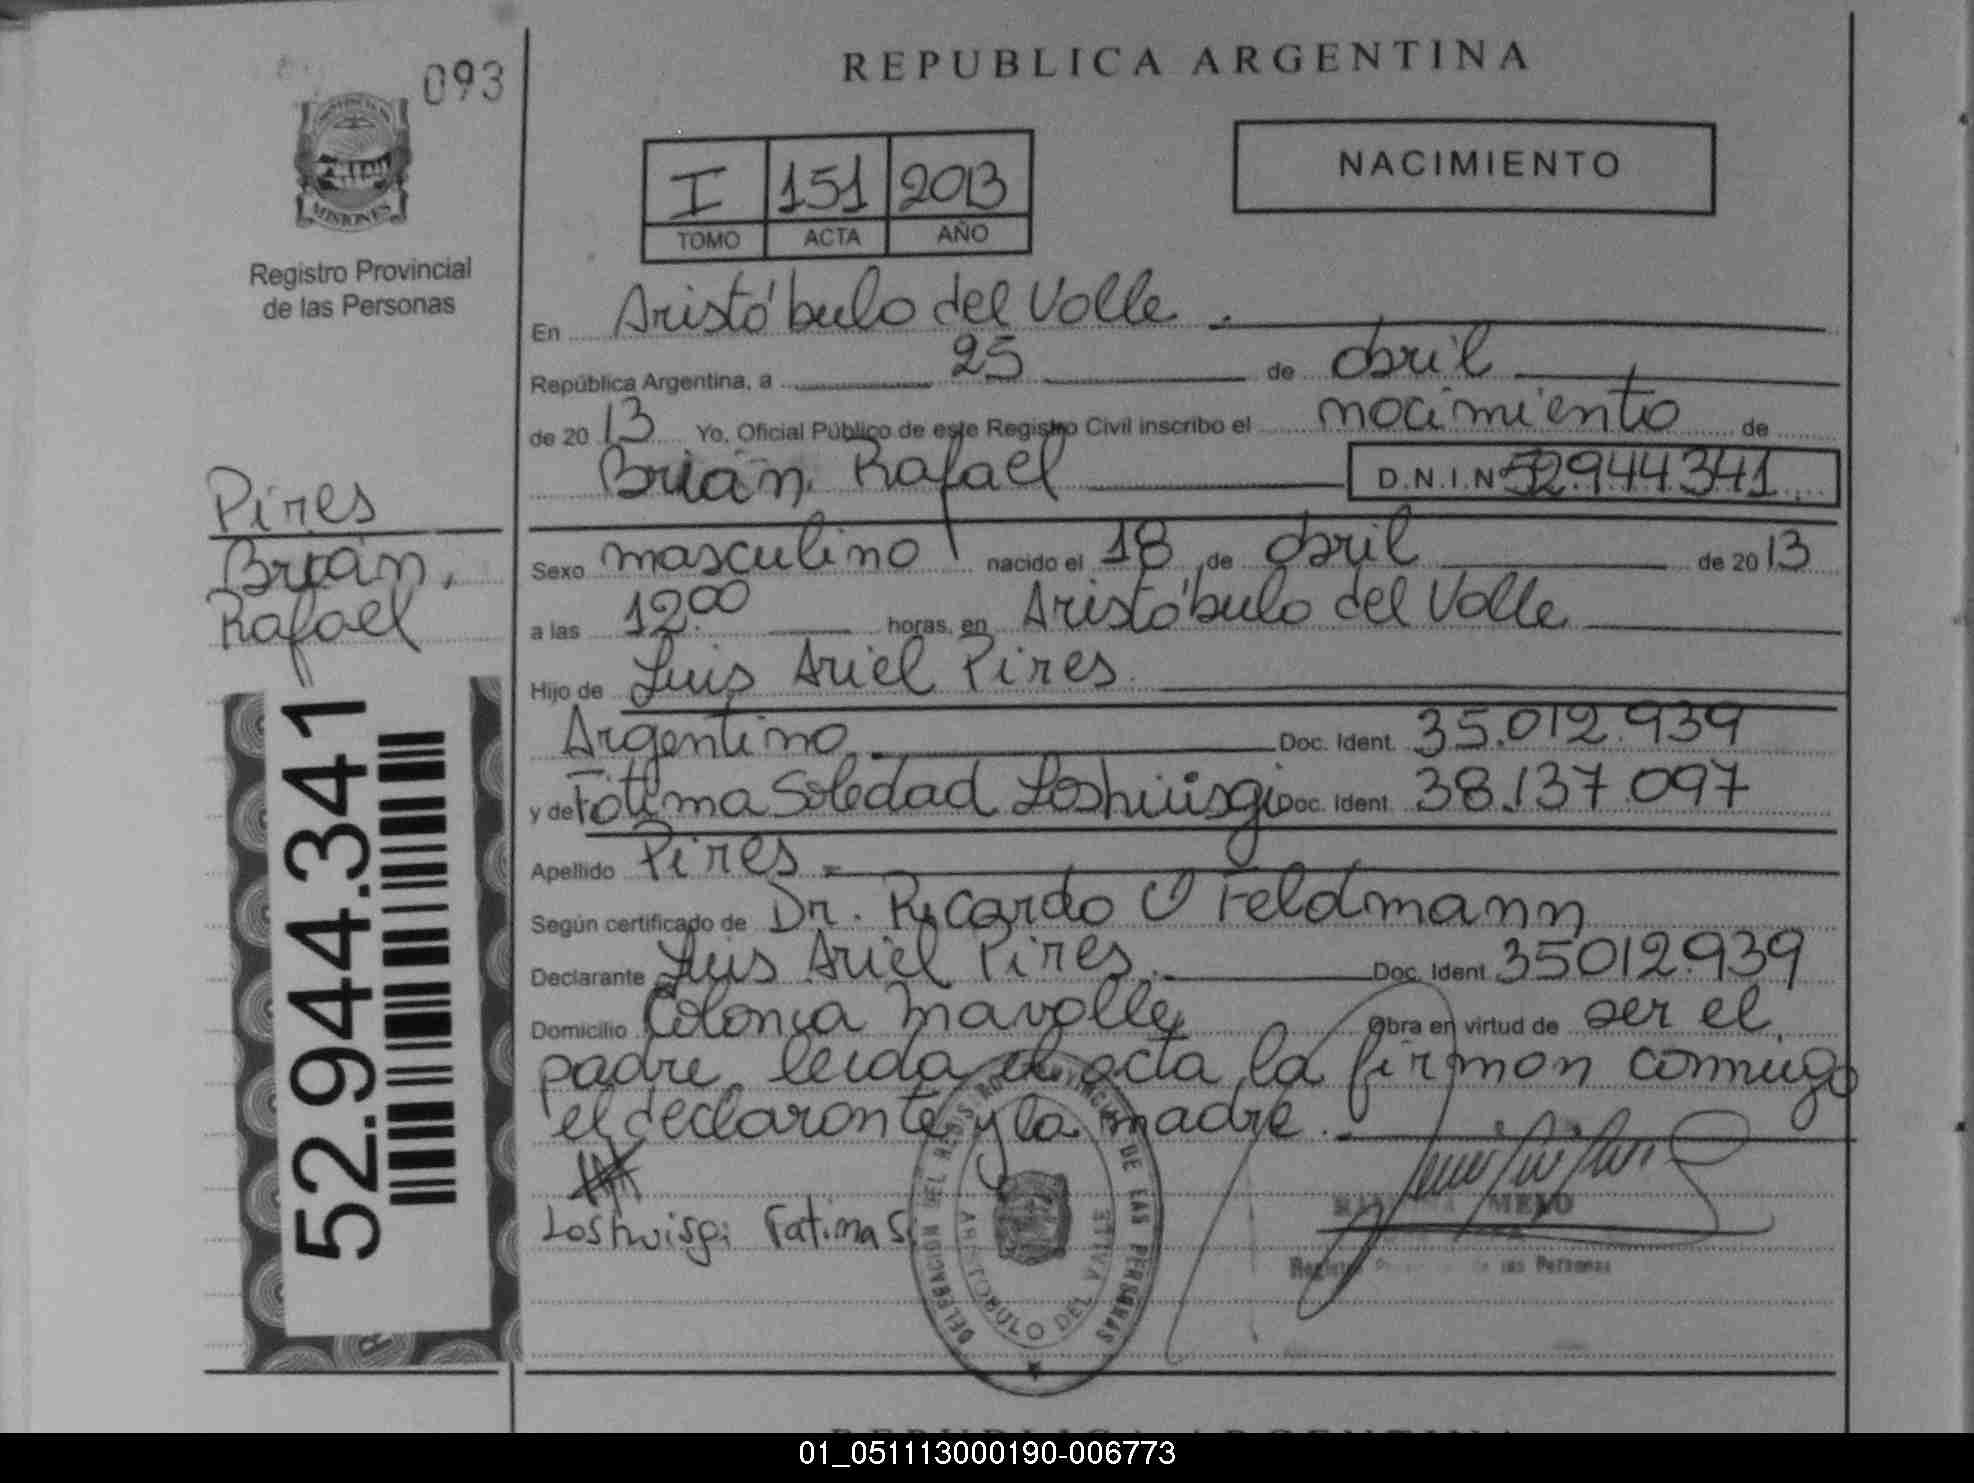 093
REPUBLICA ARGENTINA
NACIMIENTO
I 151 2013
TOMO ACTA AÑO
MISIONES
Registro Provincial
de las Personas
En Aristóbulo del Valle.
República Argentina, a 25 de abril
de 2013 Yo, Oficial Público de este Registro Civil inscribo el nacimiento de
Brian, Rafael D.N.I.Nº 52.944.341
Pires
Brian,
Rafael
Sexo masculino nacido el 18 de abril de 2013
a las 12:00 horas, en Aristóbulo del Valle
Hijo de Luis Ariel Pires
Argentino Doc. Ident. 35.012.939
y de Fátima Soledad Doc. Ident. 38.137.097
Apellido Pires
Según certificado de Dr. Ricardo O Feldmann
Declarante Luis Ariel Pires. Doc. Ident 35012.939
Domicilio Colonia Mavalle Obra en virtud de ser el
padre, leida el acta, la firman conmigo
el declarante y la madre.
52.944.341
Fatima S.
DELEGACIÓN DEL REGISTRO PROVINCIAL DE LAS PERSONAS
ARISTOBULO DEL VALLE
MELO
Registro de las Personas
REPUBLICA ARGENTINA
01_051113000190-006773